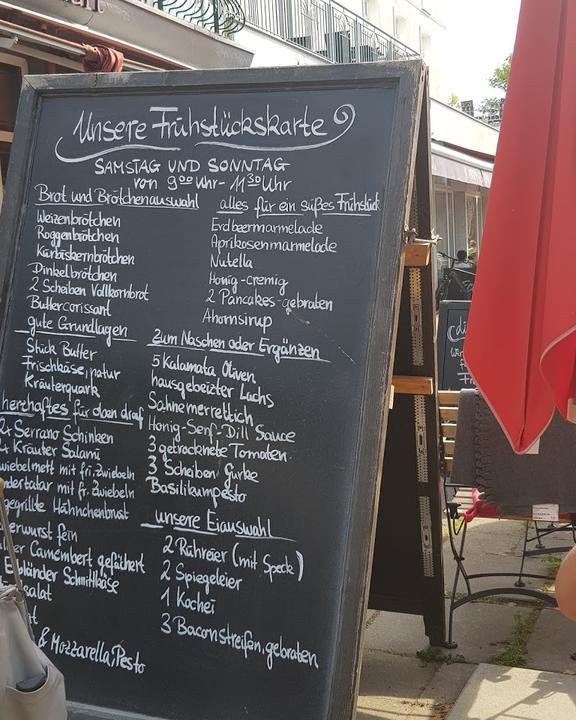 Unsere Frühstückskarte
SAMSTAG UND SONNTAG
von 9⁰⁰ Uhr - 11³⁰ Uhr
Brot und Brötchenauswahl
Weizenbrötchen
Roggenbrötchen
Kürbiskernbrötchen
Dinkelbrötchen
2 Scheiben Vollkornbrot
Buttercorissant
gute Grundlagen
Stück Butter
Frischkäse, natur
Kräuterquark
herzhaftes für oben drauf
Serrano Schinken
Kräuter Salami
wiebelmett mit fr. Zwiebeln
ndertatar mit fr. Zwiebeln
gegrillte Hähnchenbrust
erwurst fein
er Camembert gefüchert
Esbländer Schnittkäse
salat
t
& Mozzarella, Pesto
alles für ein süßes Frühstück
Erdbeermarmelade
Aprikosenmarmelade
Nutella
Honig-cremig
2 Pancakes-gebraten
Ahornsirup
Zum Naschen oder Ergänzen
5 Kalamata Oliven
hausgebeizter Lachs
Sahnemerrettich
Honig-Senf-Dill Sauce
3 getrocknete Tomaten
3 Scheiben Gurke
Basilikumpesto
unsere Eiauswahl
2 Rühreier (mit Speck)
2 Spiegeleier
1 Kochei
3 Baconstreifen, gebraten